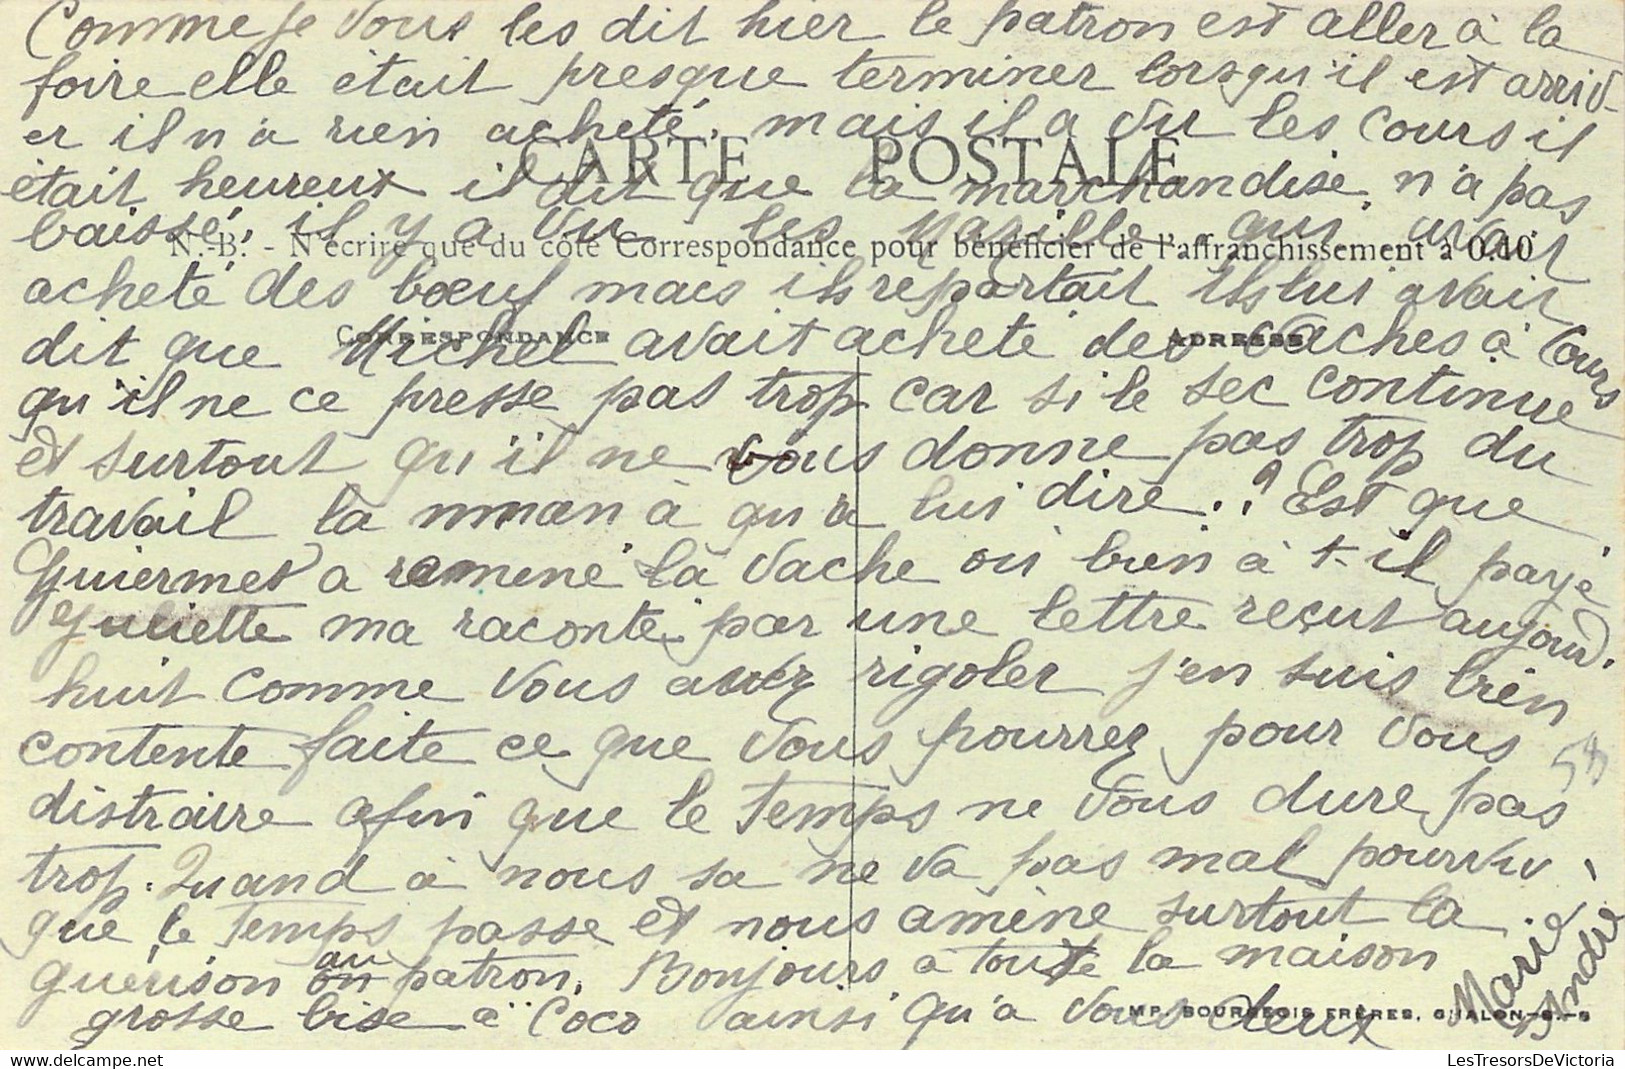 Comme je vous les dit hier le patron est aller à la
foire elle était presque terminer lorsqu'il est arriv-
er il n'a rien acheté, mais il a vu les cours il
CARTE POSTALE
était heureux il dit que la marchandise n'a pas
baissé, il y a vu les qui avait
N.-B. - N'écrire que du côté Correspondance pour bénéficier de l'affranchissement à 0.40
acheté des bœuf mais ils repartait ils lui avait
CORRESPONDANCE ADRESSE
dit que Michel avait acheté des vaches à Cours
qu'il ne ce presse pas trop car si le sec continue
et surtout qu'il ne vous donne pas trop du
travail la maman à qu'a lui dire..? Est que
Guiermet a ramené la vache ou bien à t-il payé
Juliette ma raconté par une lettre reçut aujourd'
huit comme vous avez rigoler j'en suis bien
contente faite ce que vous pourrez pour vous
58
distraire afin que le temps ne vous dure pas
trop. Quand à nous sa ne va pas mal pourvu
que le temps passe et nous amène surtout la
guérison au patron. Bonjours a toute la maison
grosse bise à Coco ainsi qu'a vous deux
Marie, André
IMP. BOURGEOIS FRÈRES, CHALON-S.-S
LesTresorsDeVictoria
delcampe.net